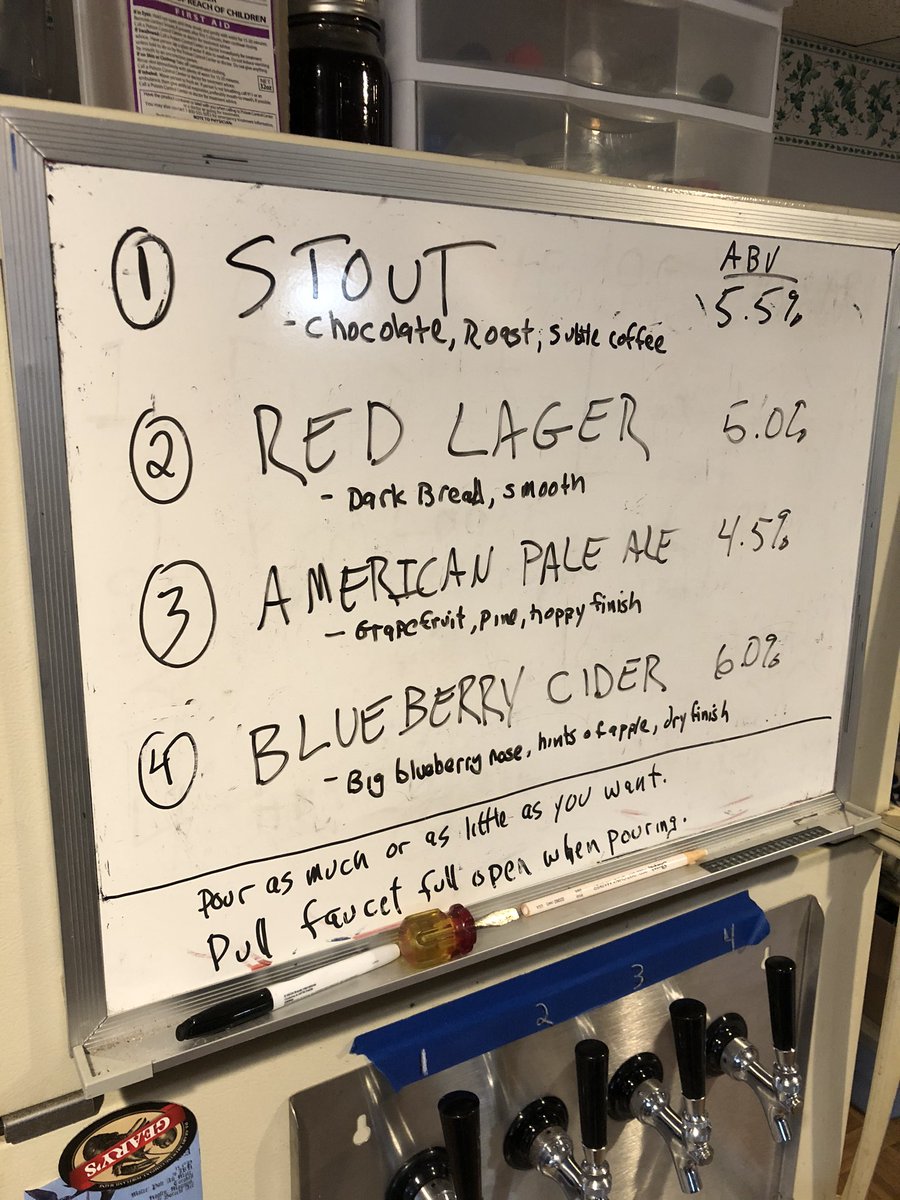 REACH OF CHILDREN
FIRST AID
① STOUT
ABV
5.5%
- Chocolate, Roast, Subtle coffee
② RED LAGER 5.0%
- Dark Bread, smooth
③ AMERICAN PALE ALE 4.5%
- Grapefruit, pine, hoppy finish
④ BLUEBERRY CIDER 6.0%
- Big blueberry nose, hints of apple, dry finish
Pour as much or as little as you want.
Pull faucet full open when pouring.
1 2 3 4
GEARY'S